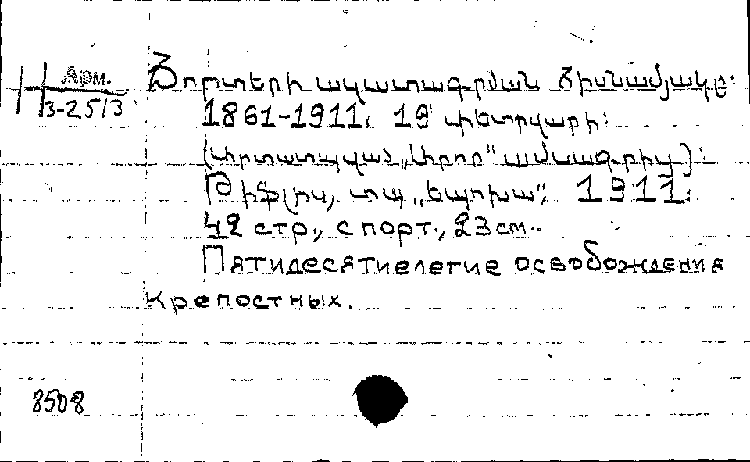 Арм.
3-2513
Ճորտերի ազատագրման հիսնամյակը:
1861-1911. 19 փետրվարի:
(Արտատպված „Լիրոր" ամսագրից):
Թիֆլիս, տպ „Էպոխա", 1911:
42 стр., с порт., 23 см.
Пятидесятиелегие освобождения
крепостных.
8508